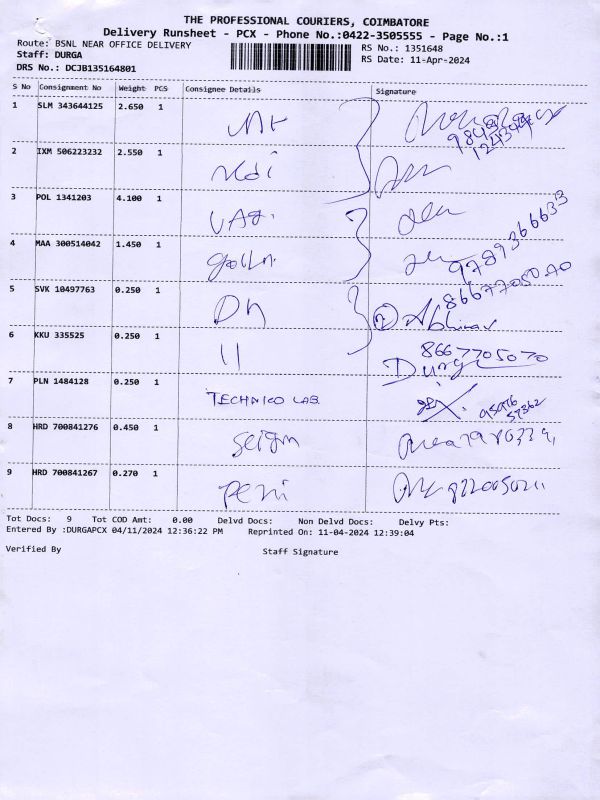 THE PROFESSIONAL COURIERS, COIMBATORE
Delivery Runsheet - PCX - Phone No.:0422-3505555 - Page No.:1
Route: BSNL NEAR OFFICE DELIVERY RS No.: 1351648
Staff: DURGA RS Date: 11-Apr-2024
DRS No.: DCJB135164801
S No Consignment No Weight PCS Consignee Details Signature
1 SLM 343644125 2.650 1
2 IXM 506223232 2.550 1
3 POL 1341203 4.100 1
4 MAA 300514042 1.450 1 9789366633
5 SVK 10497763 0.250 1 DN Abhinav 8667705070
6 KKU 335525 0.250 1 11 8667705070 Durga
7 PLN 1484128 0.250 1 TECHNICO LAB.
8 HRD 700841276 0.450 1
9 HRD 700841267 0.270 1
Tot Docs: 9 Tot COD Amt: 0.00 Delvd Docs: Non Delvd Docs: Delvy Pts:
Entered By :DURGAPCX 04/11/2024 12:36:22 PM Reprinted On: 11-04-2024 12:39:04
Verified By Staff Signature